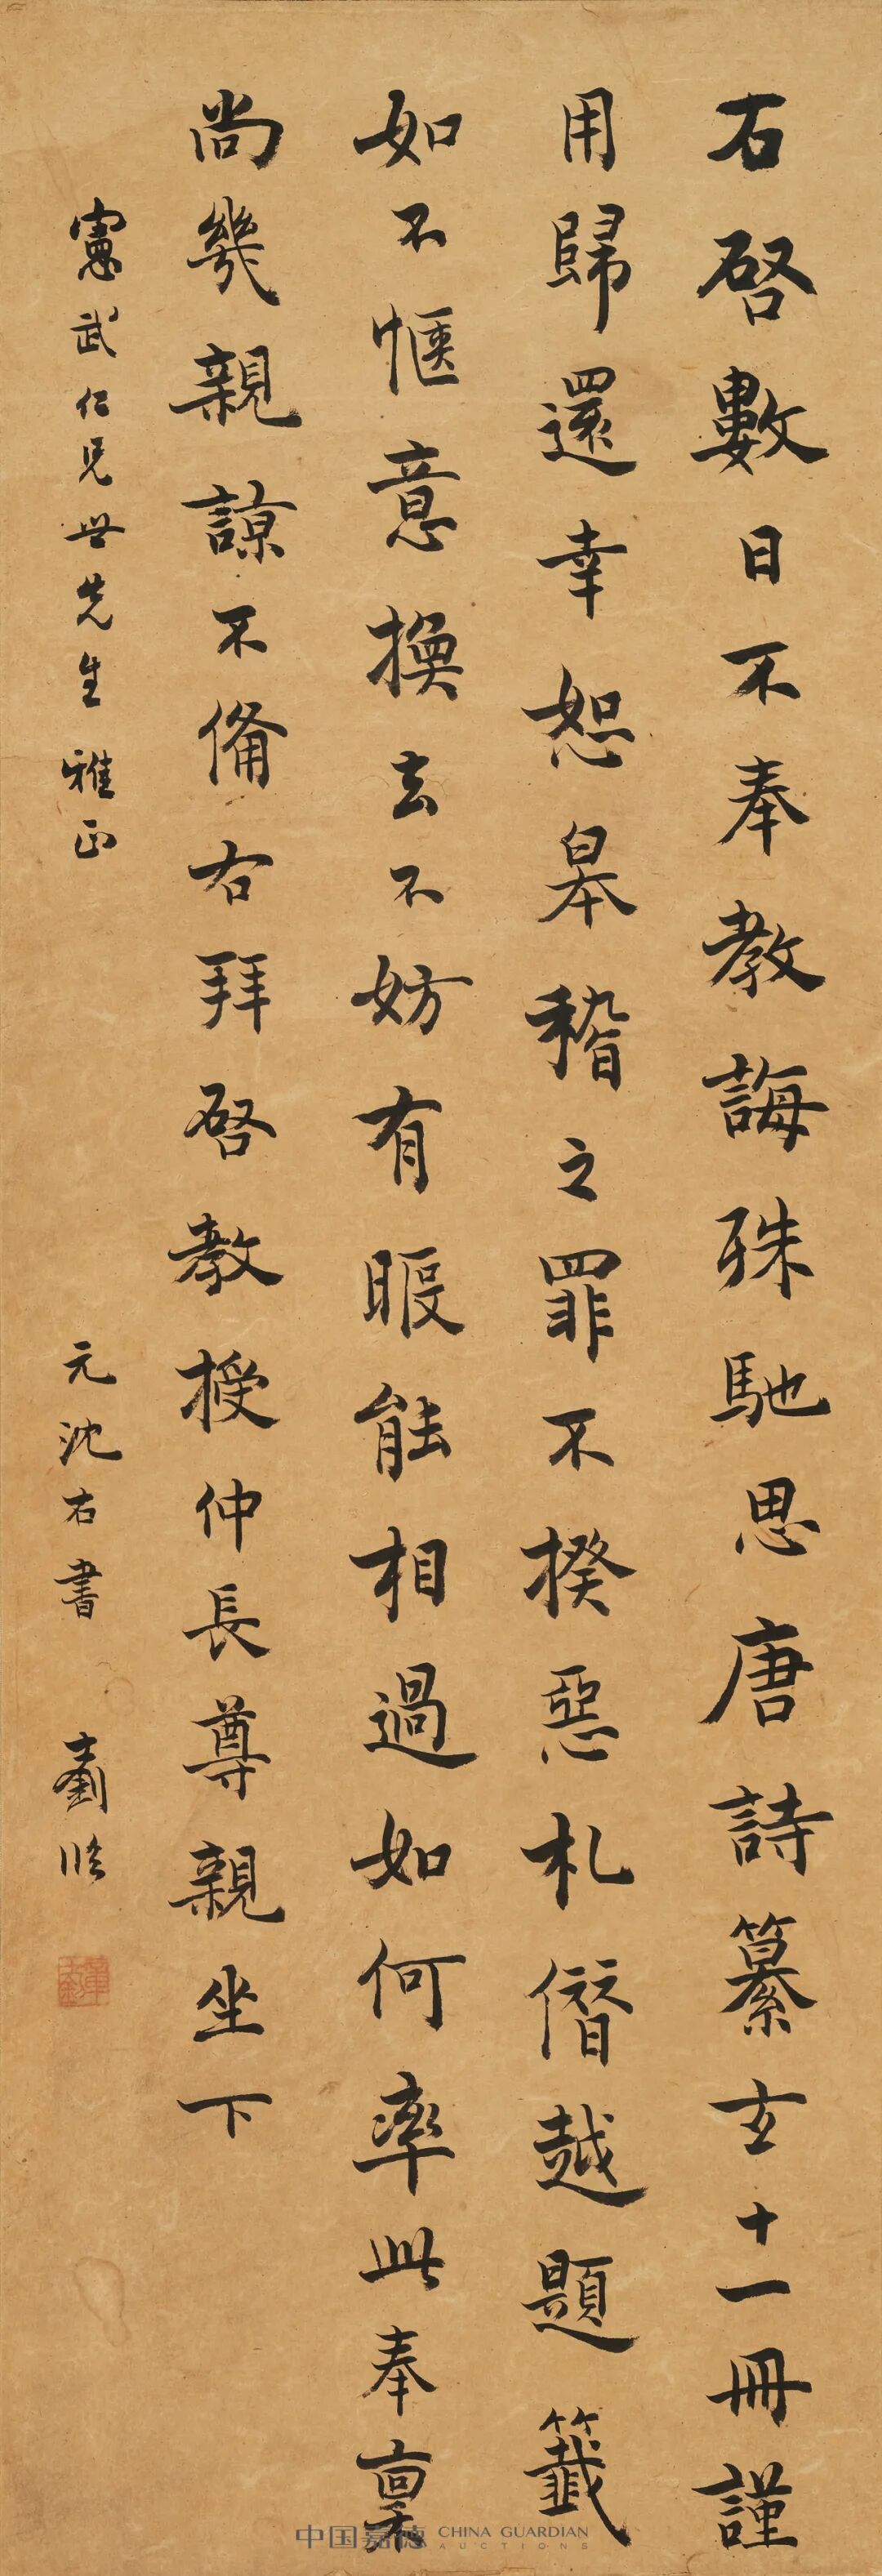 石啓數日不奉教誨殊馳思唐詩纂玄十一冊謹
用歸還幸恕皋稽之罪不揆惡札僭越題籤
如不愜意換去不妨有暇能相過如何率此奉稟
尚幾親諒不備右拜啓教授仲長尊親坐下
憲武仁兄世先生雅正
元沈右書 劉
中国嘉德 CHINA GUARDIAN
AUCTIONS